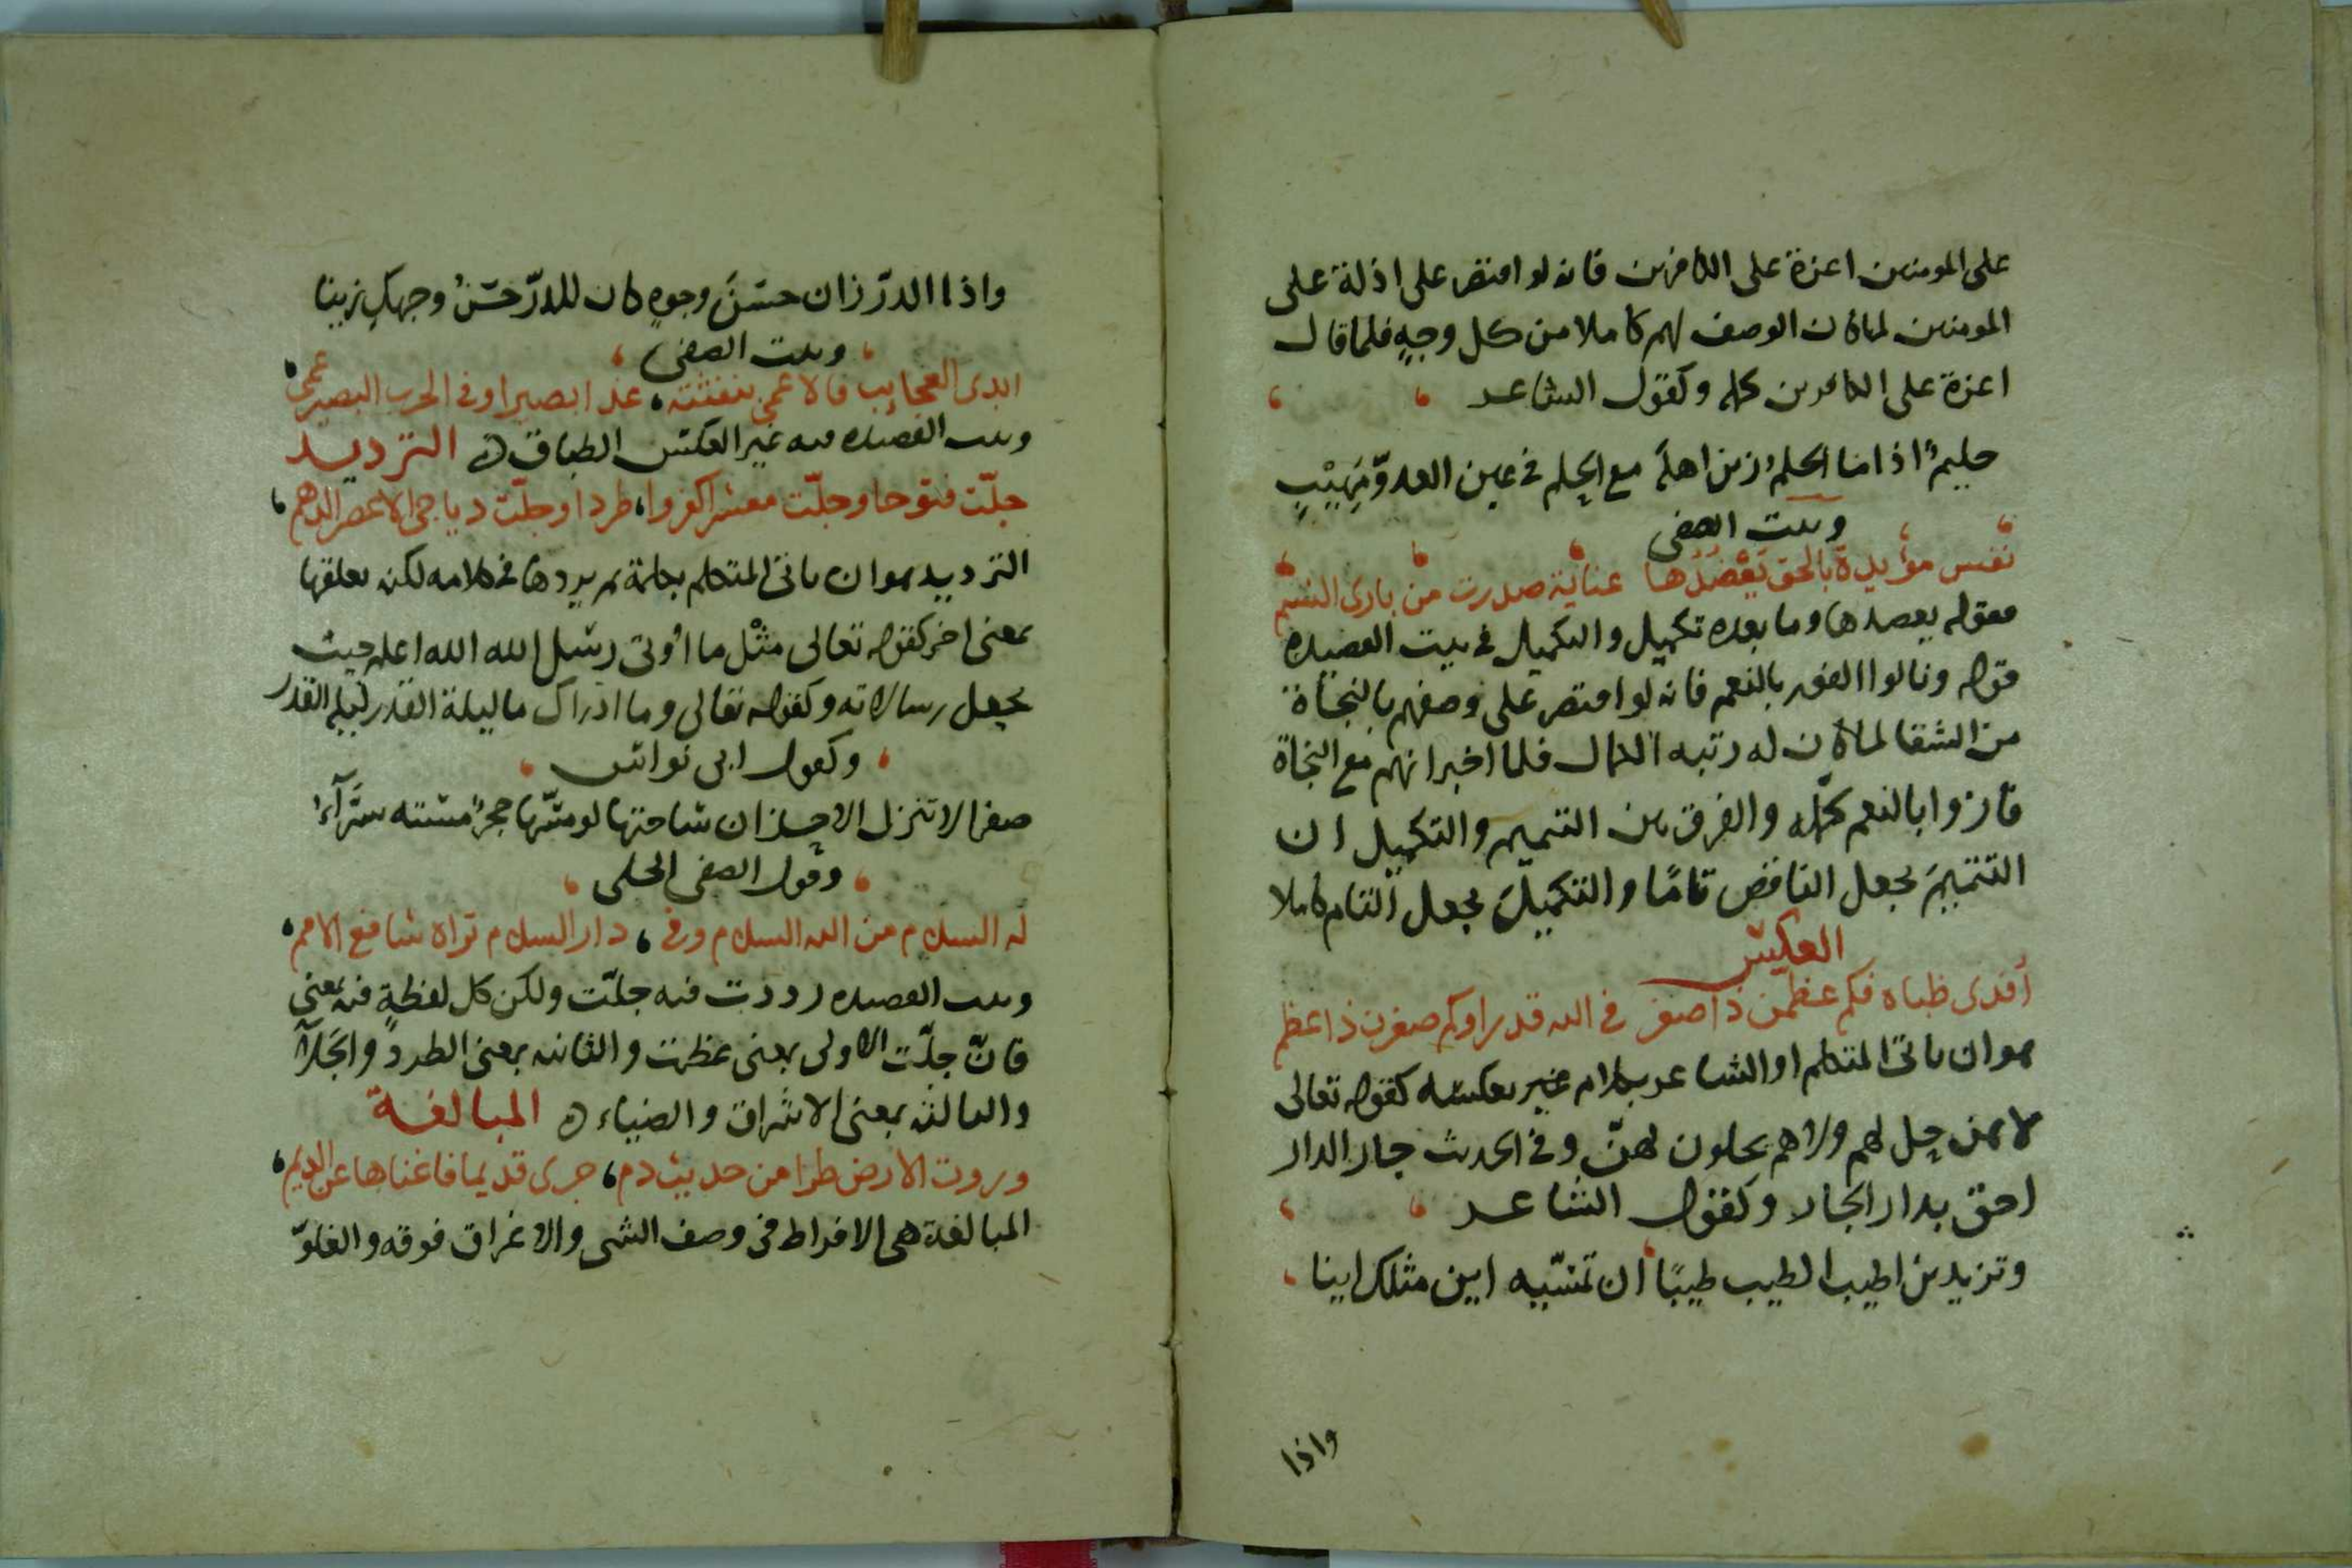 على المومنين اعزة على الكافرين فانه لو اقتصر على اذلة على
المومنين لماكان الوصف لهم كاملا من كل وجهٍ فلما قال
اعزة على الكافرين كمله وكقول الشاعر
حليمٌ اذا ما الحلمُ زين اهلَه مع الحلم في عين العدوّ مَهِيْبِ
وبيت الصفى
نفس مؤيدة بالحق تَعْضُدُها عناية صدرت من بارى النسم
فقوله يعضدها وما بعده تكميل والتكميل في بيت القصيدة
قوله ونالوا الفوز بالنعم فانه لو اقتصر على وصفهم بالنجاة
من الشقا لماكان له رتبه الكمال فلما اخبر انهم مع النجاة
فازوا بالنعم كمّله والفرق بين التتميم والتكميل ان
التتميمَ يجعل الناقص تامًا والتكميلَ يجعل التام كاملا
العكس
أفدى ظباه فكم عظمن ذا صغر في الله قدرا وكم صغرن ذا عظم
هو ان ياتى المتكلم او الشاعر بكلام غير بعكسه كقوله تعالى
لا هن حل لهم ولا هم يحلون لهنّ وفي الحديث جار الدار
احق بدار الجار وكقول الشاعر
وتزيدين اطيب الطيب طيبًا ان تمسّيه اين مثلك اينا
واذا
واذا الدرّ زان حسنَ وجوهٍ كان للدرّ حسنُ وجهكِ زينا
وبيت الصفى
ابدى العجايب فالاعمى بنفثته، غدا بصيرا وفى الحرب البصير عمى
وبيت القصيده فيه غير العكس الطباق الترديد
جلّت فتوحا وجلّت معشرا كفروا، طردا وجلّت دياجى الاعصر الدهم
الترديد هو ان ياتى المتكلم بكلمة ثم يرددها في كلامه لكنه يعلقها
بمعنى اخر كقوله تعالى مثْل ما أوتى رسل الله الله اعلم حيث
يجعل رسالاته وكقوله تعالى وما ادراك ما ليلة القدر ليله القدر
وكقول ابى نواس
صفرا لا تنزل الاحزان ساحتها لو مسّها حجرٌ مسته سَرّآءُ
وقول الصفى الحلى
له السلام من الله السلام وفى، دار السلام تراه شافع الامم
وبيت القصيده رددت فيه جلّت ولكن كل لفظةٍ فيه بمعنى
فانّ جلّت الاولى بمعنى عظمت والثانيه بمعنى الطرد والجَلآ
والثالثه بمعنى الاشراق والضياء المبالغة
وروت الارض طرا من حديث دم، جرى قديما فاغناها عن الديم
المبالغة هى الافراط في وصف الشى والاغراق فوقه والغلوّ